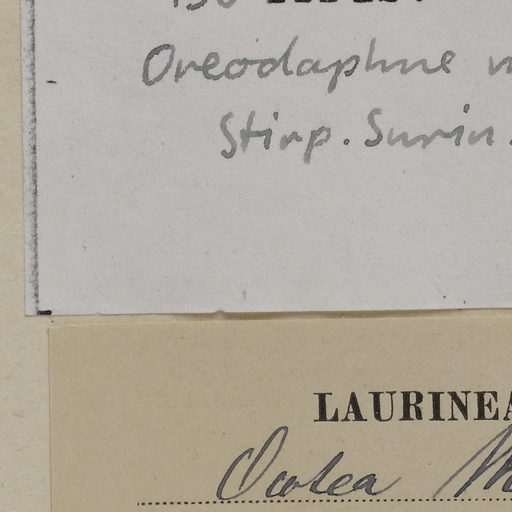 Oreodaphne
Stirp. Surin.
LAURINEA
Ocotea